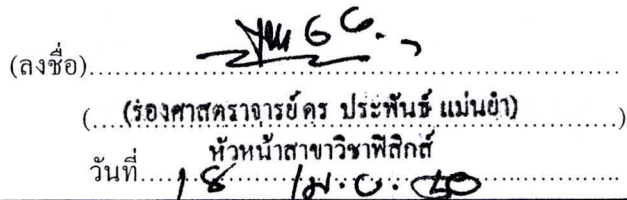 (ลงชื่อ)
(รองศาสตราจารย์ ดร ประพันธ์ แม่นยำ)
หัวหน้าสาขาวิชาฟิสิกส์
วันที่ 18